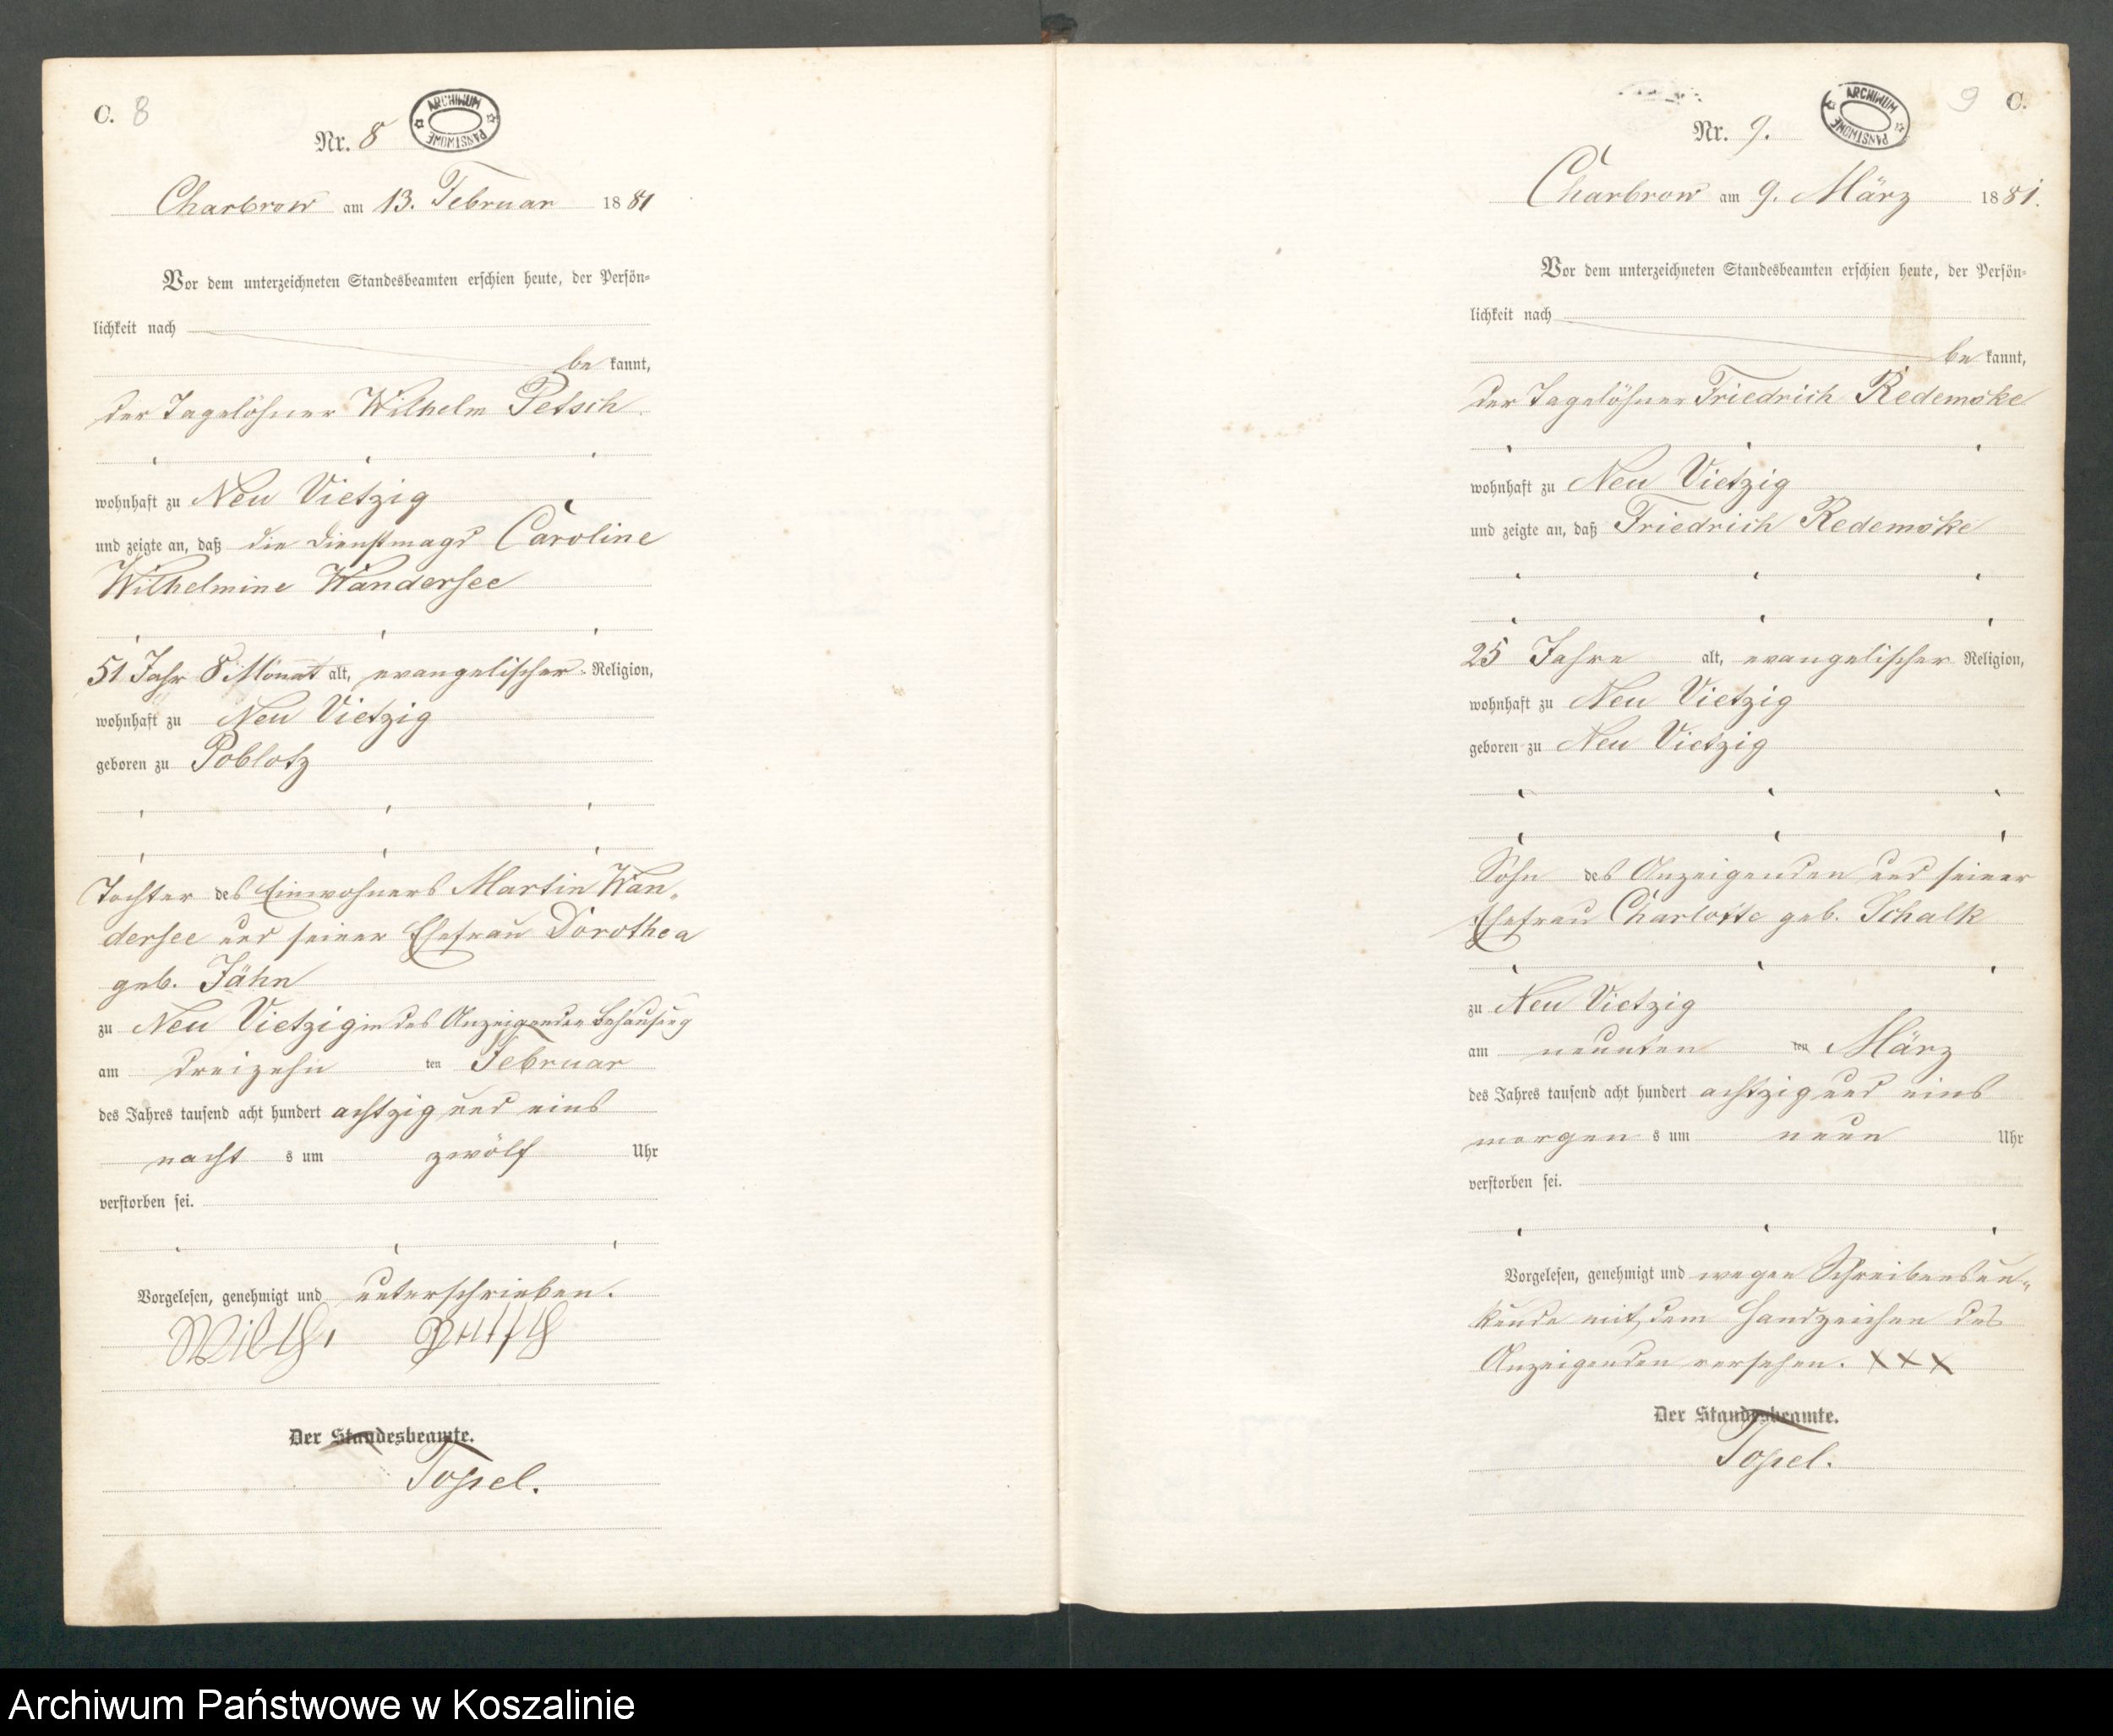 C. 8
ARCHIWUM PAŃSTWOWE
Nr. 8
Charbrow am 13. Februar 1881
Vor dem unterzeichneten Standesbeamten erschien heute, der Persön-
lichkeit nach
be kannt,
der Tagelöhner Wilhelm Petsch
wohnhaft zu Neu Vietzig
und zeigte an, daß die Dienstmagd Caroline
Wilhelmine Wandersee
51 Jahr 8 Monat alt, evangelischer Religion,
wohnhaft zu Neu Vietzig
geboren zu Poblotz
Tochter des Einwohners Martin Wan-
dersee und seiner Ehefrau Dorothea
geb. Jähn
zu Neu Vietzig in des Anzeigenden Behausung
am dreizehn ten Februar
des Jahres tausend acht hundert achtzig und eins
nacht s um zwölf Uhr
verstorben sei.
Vorgelesen, genehmigt und unterschrieben.
Wilh. Petsch
Der Standesbeamte.
Topel.
9 C.
ARCHIWUM PAŃSTWOWE
Nr. 9.
Charbrow am 9. März 1881.
Vor dem unterzeichneten Standesbeamten erschien heute, der Persön-
lichkeit nach
be kannt,
der Tagelöhner Friedrich Redemske
wohnhaft zu Neu Vietzig
und zeigte an, daß Friedrich Redemske
25 Jahre alt, evangelischer Religion,
wohnhaft zu Neu Vietzig
geboren zu Neu Vietzig
Sohn des Anzeigenden und seiner
Ehefrau Charlotte geb. Schalk
zu Neu Vietzig
am neunten ten März
des Jahres tausend acht hundert achtzig und eins
morgen s um neun Uhr
verstorben sei.
Vorgelesen, genehmigt und wegen Schreibensun-
kunde mit dem Handzeichen des
Anzeigenden versehen. XXX
Der Standesbeamte.
Topel.
Archiwum Państwowe w Koszalinie